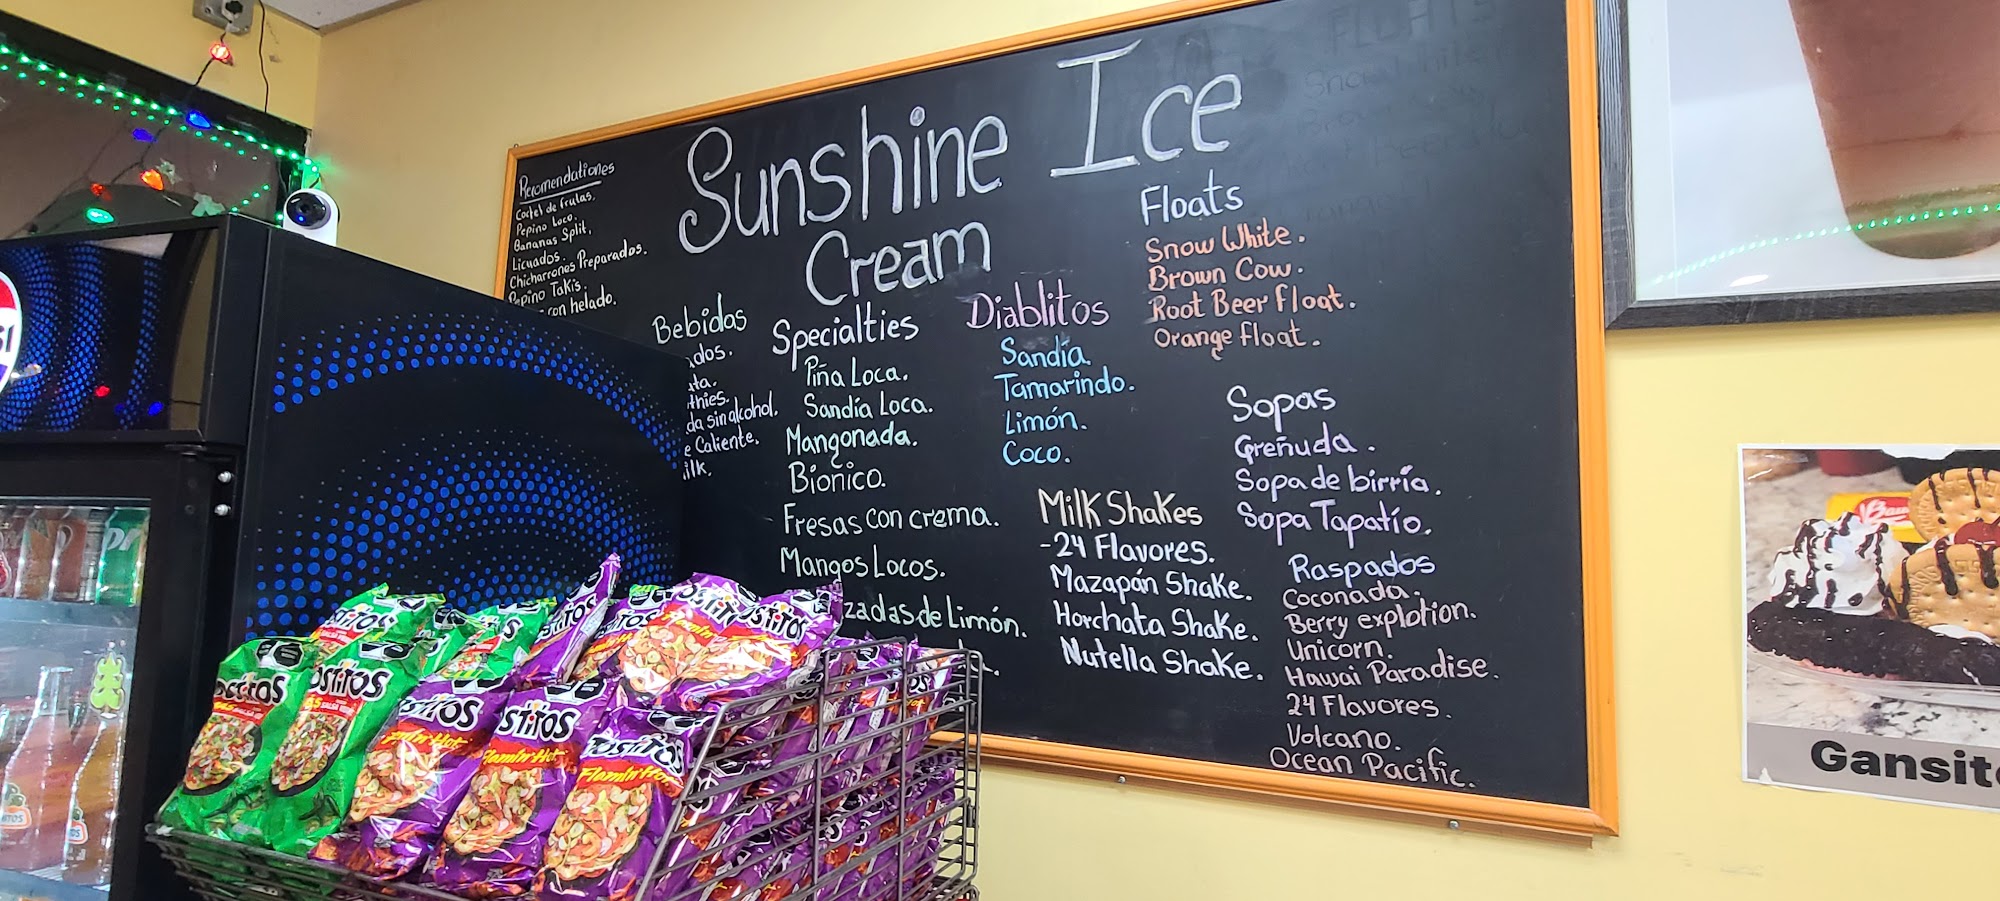 Sunshine Ice
Cream
Recomendationes
Coctel de frutas.
Pepino Loco.
Bananas Split.
Licuados.
Chicharrones Preparados.
Pepino Takis.
con helado.
Bebidas
sin alcohol.
Caliente.
Specialties
Piña Loca.
Sandía Loca.
Mangonada.
Bionico.
Fresas con crema.
Mangos Locos.
de Limón.
Diablitos
Sandía.
Tamarindo.
Limón.
Coco.
Milk Shakes
-24 Flavores.
Mazapán Shake.
Horchata Shake.
Nutella Shake.
Floats
Snow White.
Brown Cow.
Root Beer Float.
Orange Float.
Sopas
Greñuda.
Sopa de birría.
Sopa Tapatío.
Raspados
Coconada.
Berry explotion.
Unicorn.
Hawai Paradise.
24 Flavores.
Volcano.
Ocean Pacific.
Tostitos
Flamin' Hot
Tostitos
Flamin' Hot